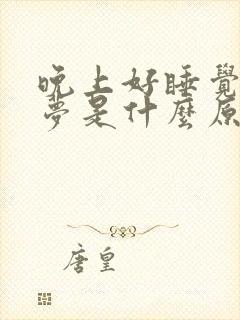 晚上好睡覺
夢是什麼原
唐皇